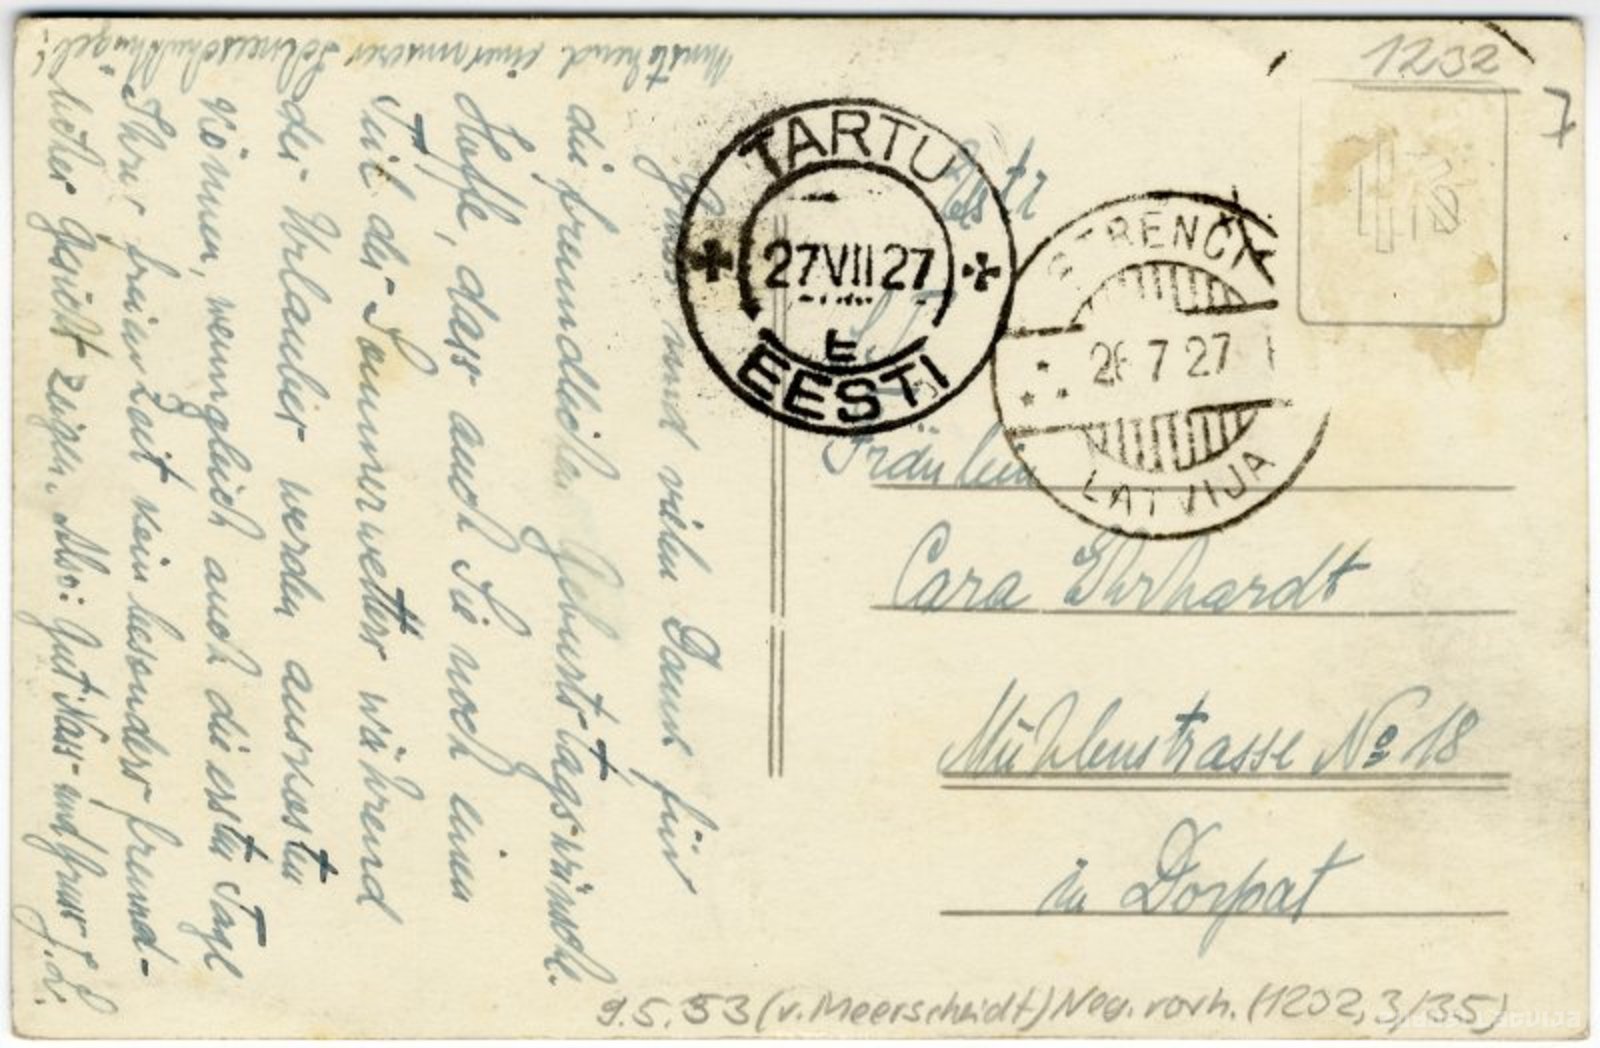 1232
7
TARTU
27 VII 27
E
EESTI
STRENČI
26 7 27
LATVIJA
Estl
Fräulein
Cara Ehrhardt
Mühlenstrasse № 18
in Dorpat
Gruss und vielen Dank für
die freundlichen Geburtstagswünsche.
Hoffe, dass auch Sie noch einen
Teil des Sommerwetters während
des Urlaubes werden auskosten
können, wenngleich auch die ersten Tage
Ihrer freien Zeit kein besonders freund-
liches Gesicht zeigen. Also: Gut Nass- und
Umstehend einer unserer Schneeschuhhügel!
9.5.53 (v. Meerscheidt) Neg. vorh. (1202, 3/35)